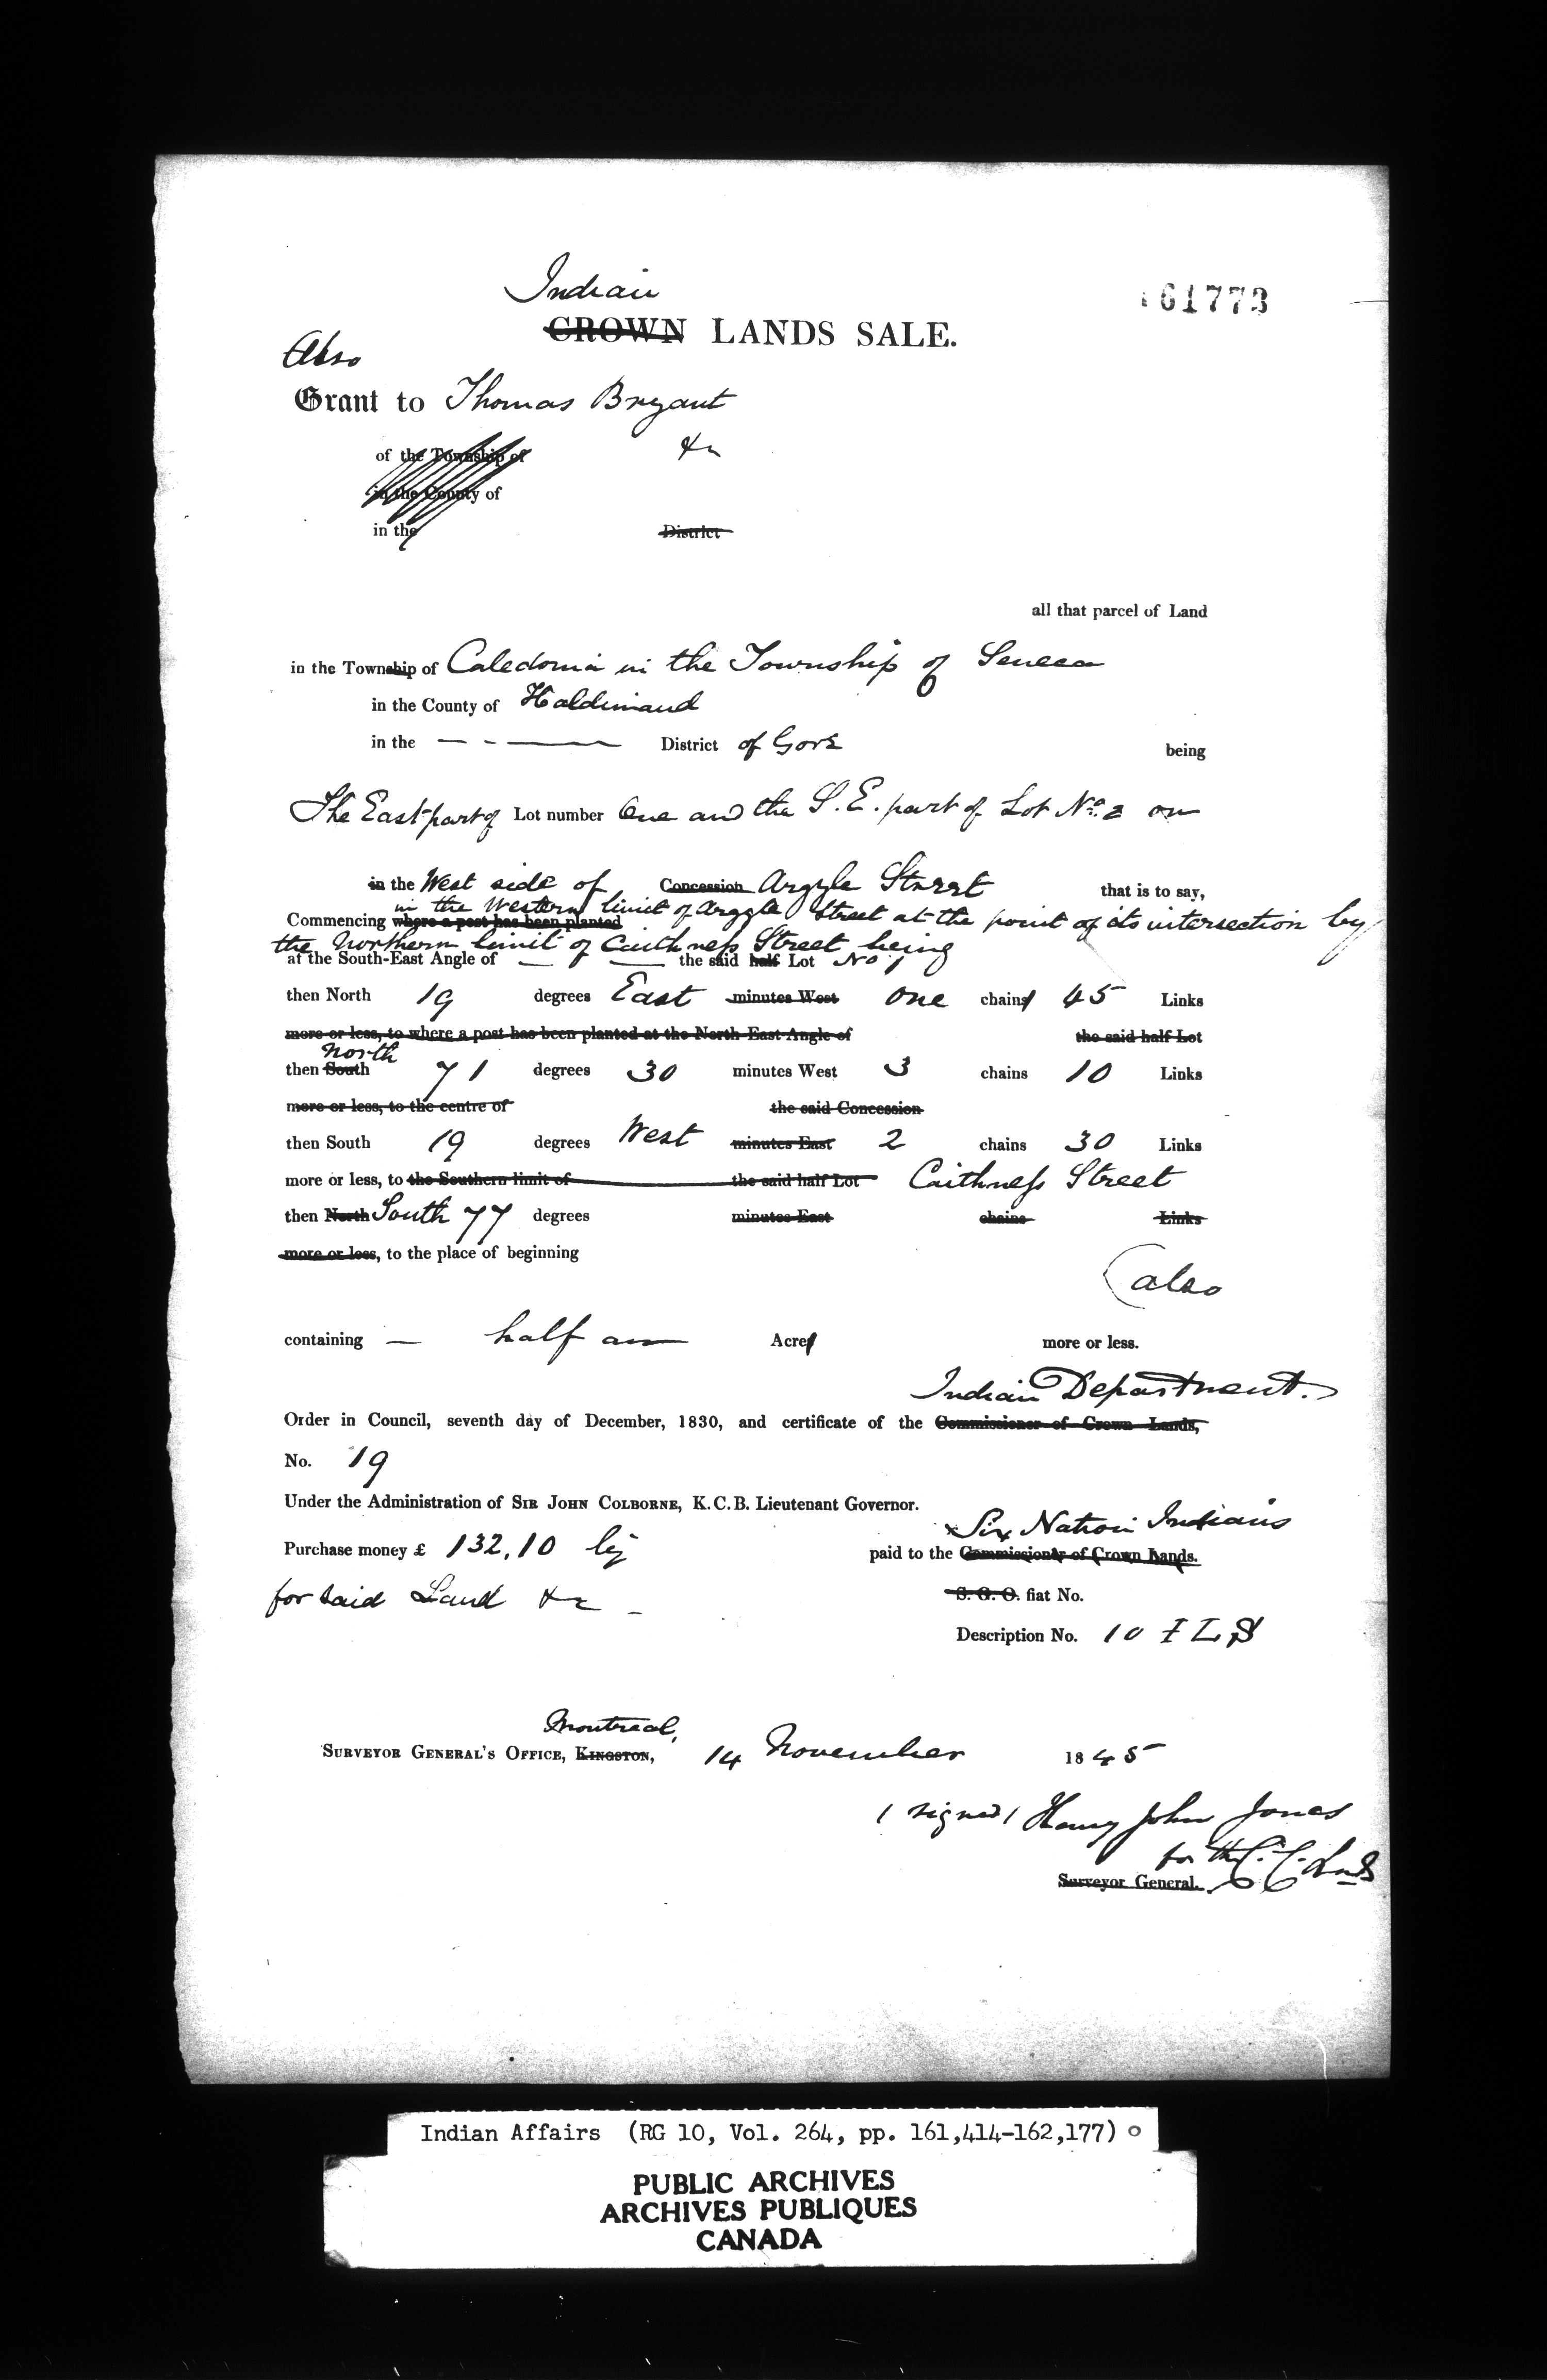 Indian
161773
CROWN LANDS SALE.
Also
Grant to Thomas Bryant
of the Township of &c
in the County of
in the District
all that parcel of Land
in the Township of Caledonia in the Township of Seneca
in the County of Haldimand
in the — - — District of Gore being
The East part of Lot number One and the S. E. part of Lot No. 2 on
in the West side of Concession Argyle Street that is to say,
in the Western limit of Argyle Street at the point of its intersection by
Commencing where a post has been planted
the Northern limit of Caithness Street being
at the South-East Angle of — — the said half Lot No 1
then North 19 degrees East minutes West one chains 45 Links
more or less, to where a post has been planted at the North East Angle of the said half Lot
north
then South 71 degrees 30 minutes West 3 chains 10 Links
more or less, to the centre of the said Concession
then South 19 degrees West minutes East 2 chains 30 Links
more or less, to the Southern limit of the said half Lot Caithness Street
then North South 77 degrees minutes East chains Links
more or less, to the place of beginning
(also
containing — half an Acres more or less.
Indian Department.
Order in Council, seventh day of December, 1830, and certificate of the Commissioner of Crown Lands,
No. 19
Under the Administration of SIR JOHN COLBORNE, K.C.B. Lieutenant Governor.
Six Nation Indians
Purchase money £ 132,10 paid to the Commissioner of Crown Lands.
for said Land &c - S. G. O. fiat No.
Description No. 10 I L S
Montreal,
SURVEYOR GENERAL'S OFFICE, KINGSTON, 14 November 1845
(signed) Henry John Jones
for the C. C. Lands
Surveyor General.
Indian Affairs (RG 10, Vol. 264, pp. 161,414-162,177)
PUBLIC ARCHIVES
ARCHIVES PUBLIQUES
CANADA